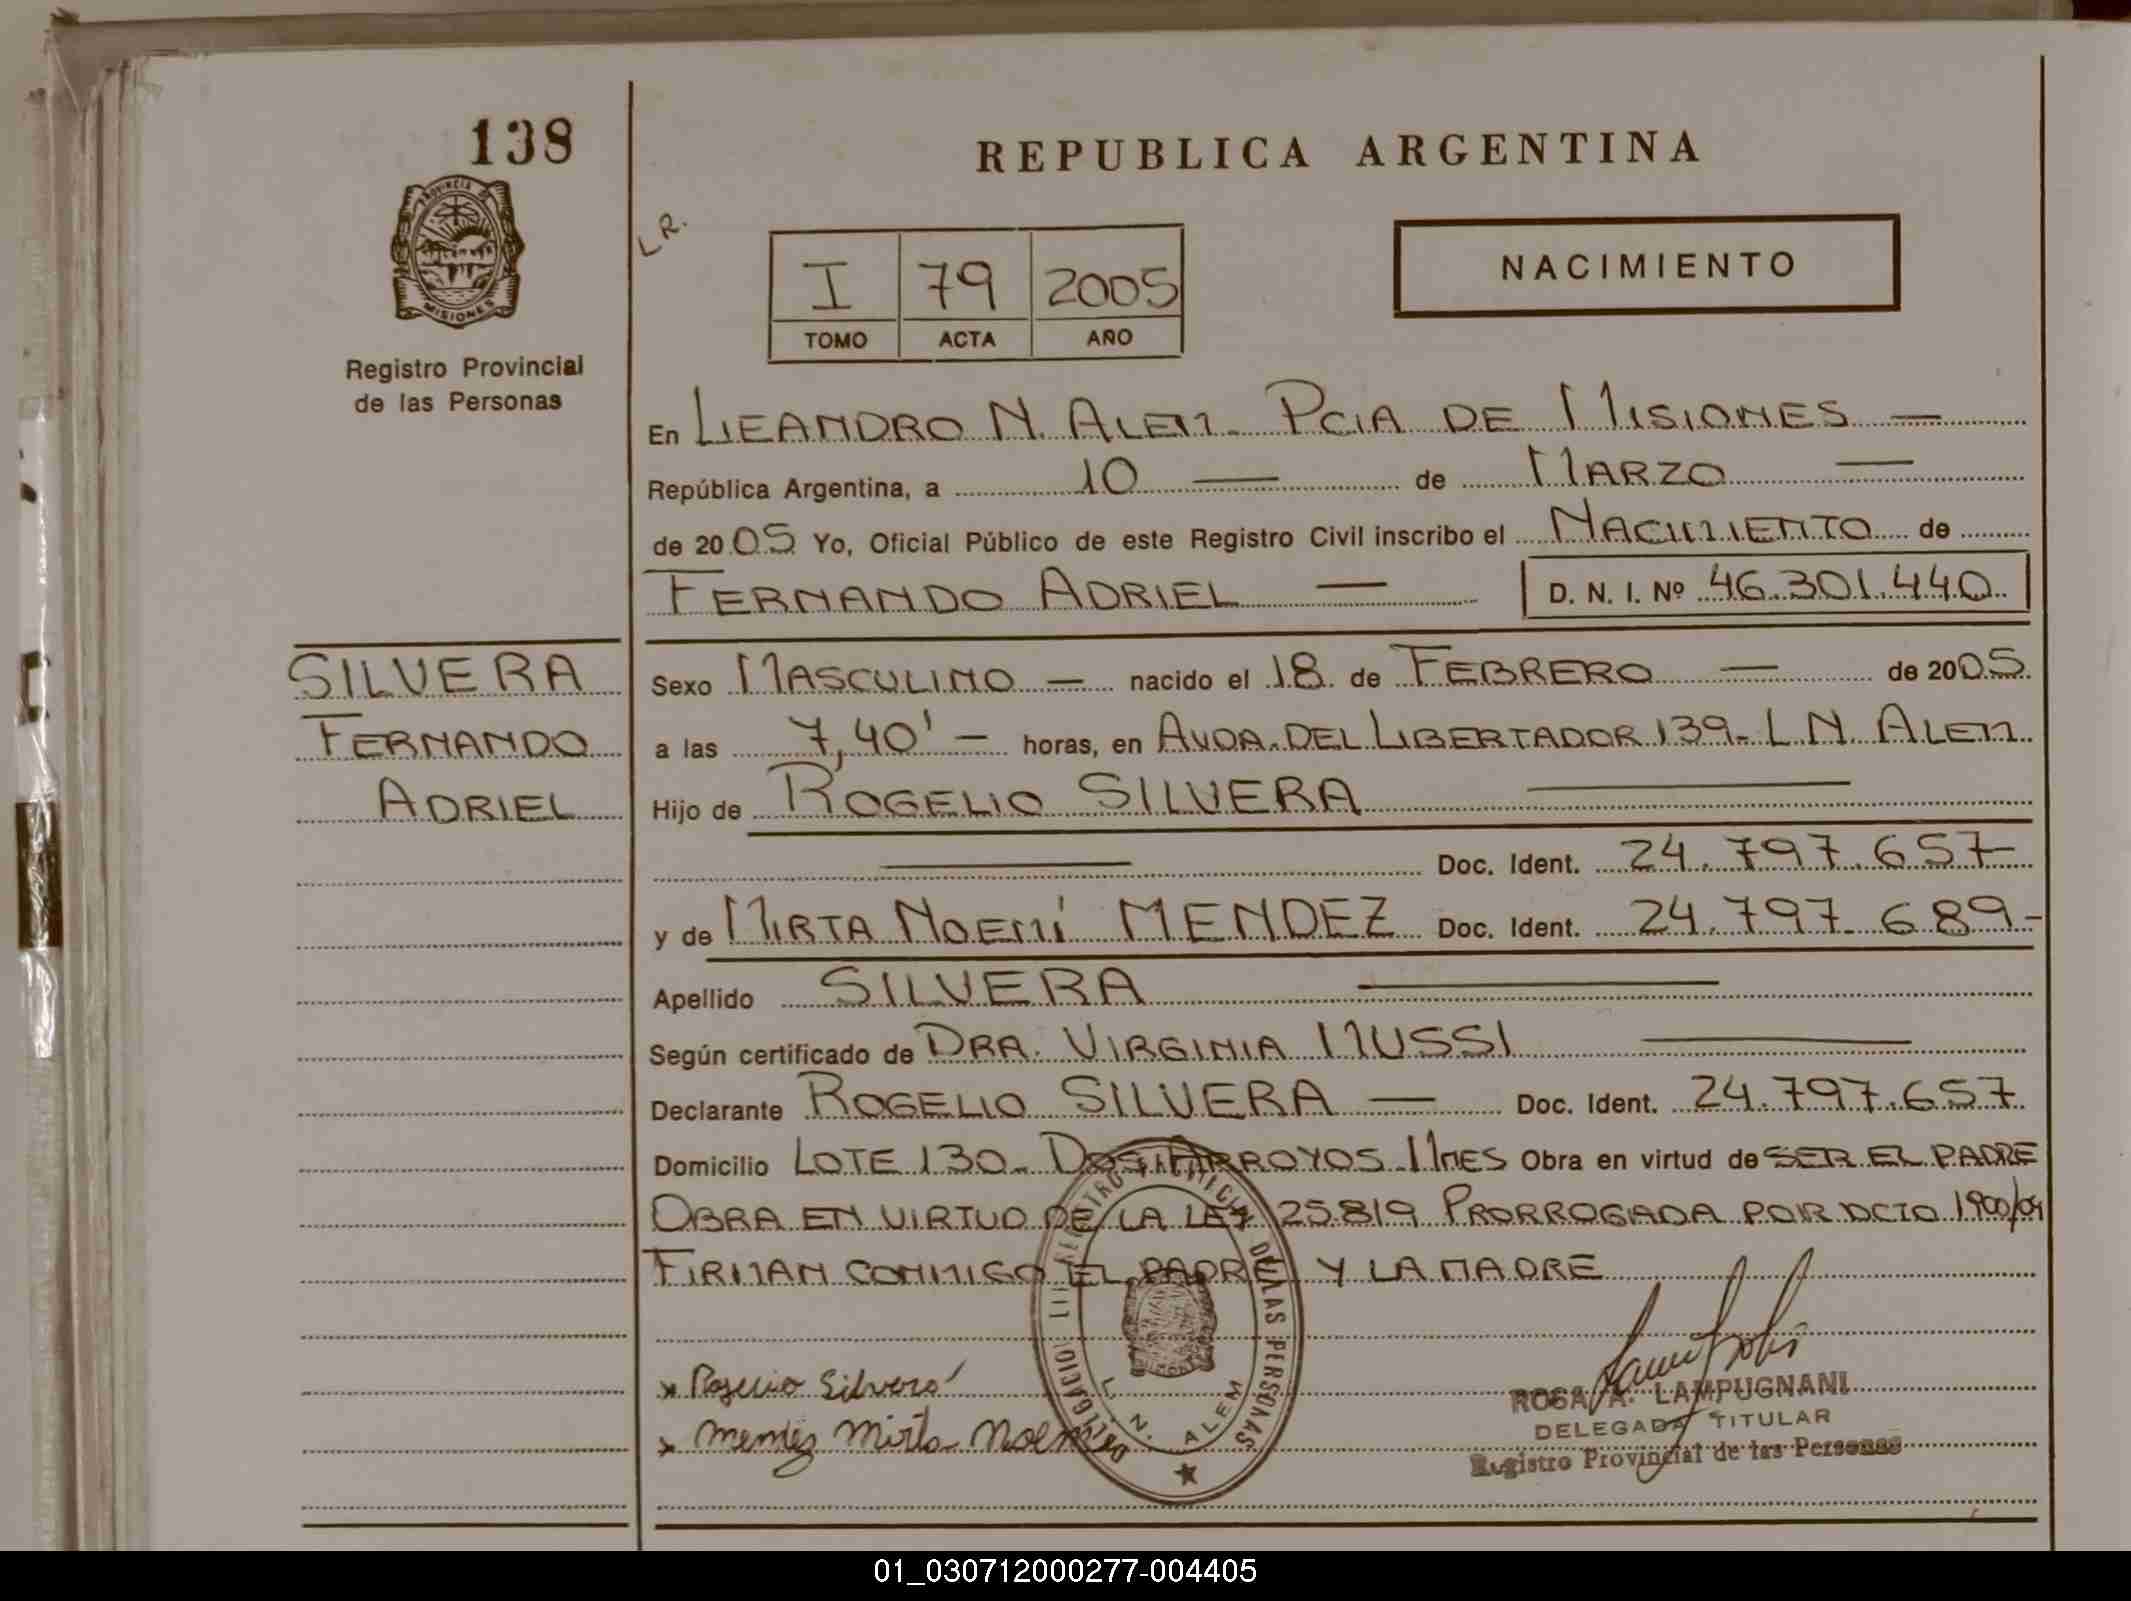 138
REPUBLICA ARGENTINA
PROVINCIA DE
MISIONES
L.R.
I 79 2005
TOMO ACTA AÑO
NACIMIENTO
Registro Provincial
de las Personas
En LEANDRO N. ALEM. PCIA DE MISIONES —
República Argentina, a 10 — de MARZO —
de 2005 Yo, Oficial Público de este Registro Civil inscribo el NACIMIENTO de
FERNANDO ADRIEL — D. N. I. Nº 46.301.440
SILVERA
FERNANDO
ADRIEL
Sexo MASCULINO — nacido el 18 de FEBRERO — de 2005.
a las 7,40' — horas, en AVDA. DEL LIBERTADOR 139- L N. ALEM
Hijo de ROGELIO SILVERA —
— Doc. Ident. 24.797.657-
y de MIRTA NOEMÍ MENDEZ Doc. Ident. 24.797.689-
Apellido SILVERA —
Según certificado de DRA. VIRGINIA MUSSI —
Declarante ROGELIO SILVERA — Doc. Ident. 24.797.657
Domicilio LOTE 130- DOS ARROYOS MNES Obra en virtud de SER EL PADRE
OBRA EN VIRTUD DE LA LEY 25.819 PRORROGADA POR DCTO 1900/04
FIRMAN CONMIGO EL PADRE Y LA MADRE
x Rogelio Silvera
x Mendez Mirta Noemi
DE LAS PERSONAS
L. N. ALEM
ROSA A. LAMPUGNANI
DELEGADA TITULAR
Registro Provincial de las Personas
01_030712000277-004405